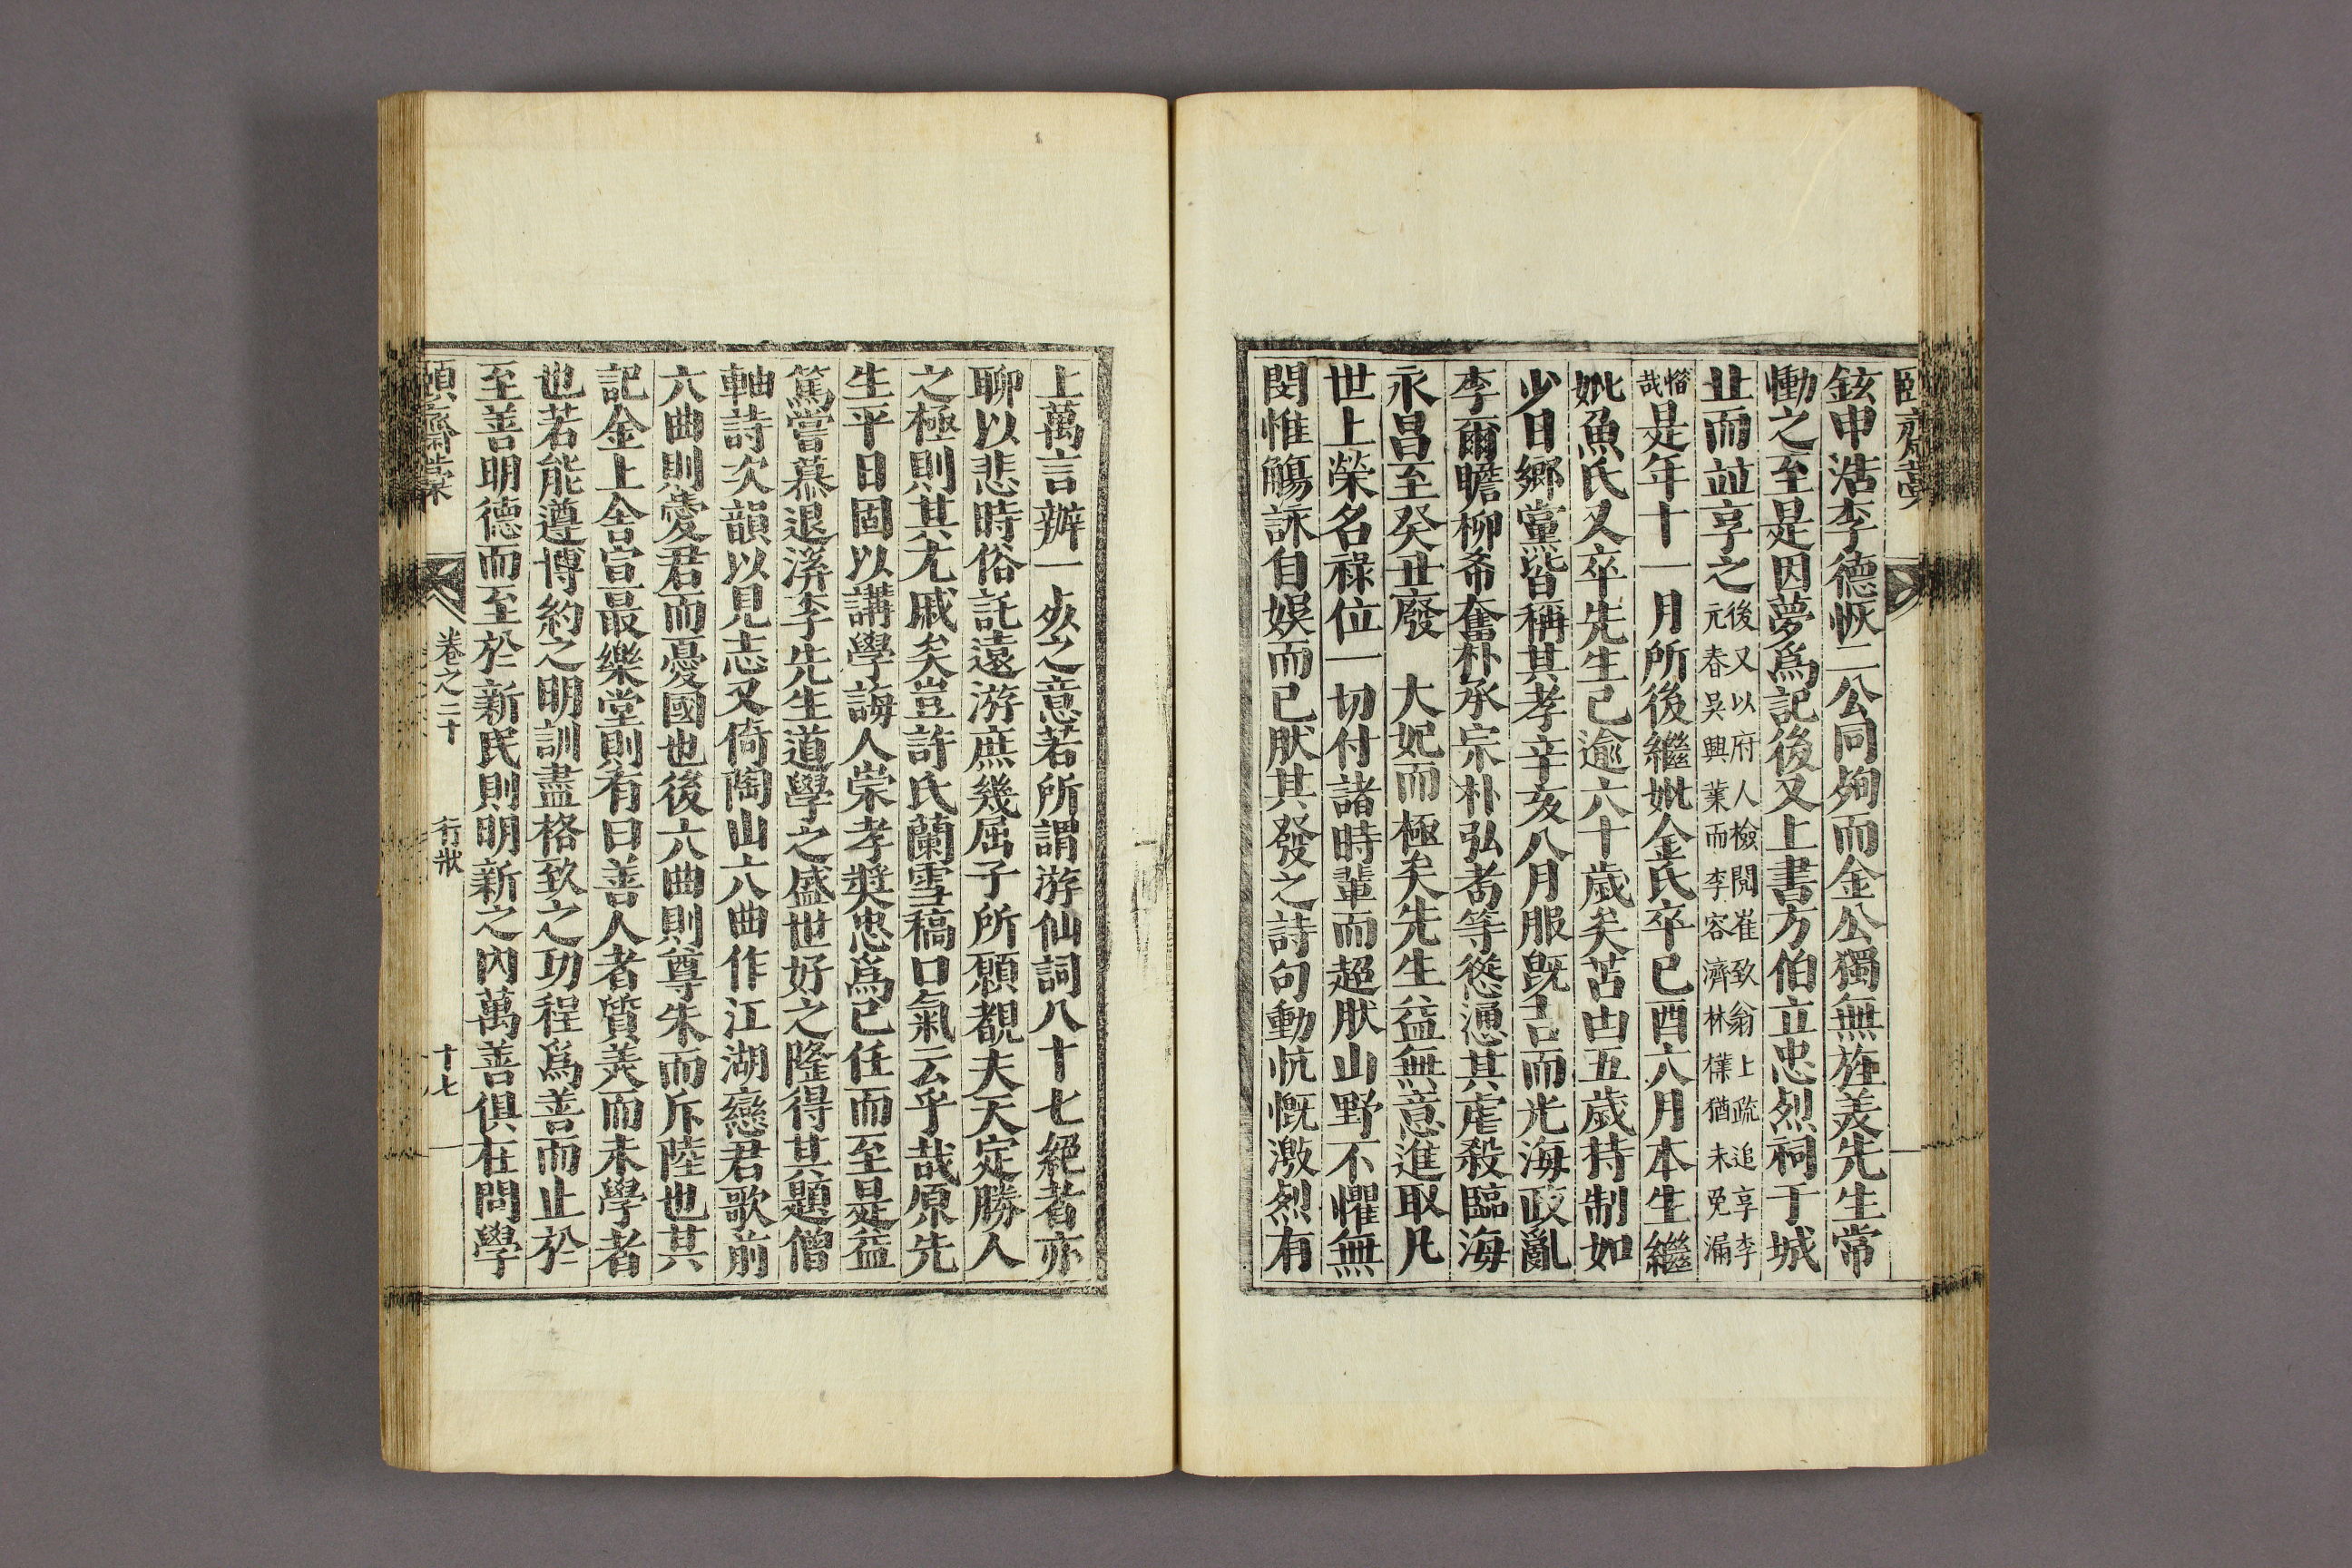 鉉申浩李德恢二公同殉而金公獨無旌羙先生常
慟之至是因夢爲記後又上書方伯立忠烈祠于城
止而並享之後又以府人檢閱崔致翁上疏追享李
元春吳興業而李容濟林㰌猶未免漏
惜
哉是年十一月所後繼妣金氏卒己酉六月本生繼
妣魚氏又卒先生已逾六十歲矣苫凷五歲持制如
少日鄉黨皆稱其孝辛亥八月服旣吉而光海政亂
李爾瞻柳希奮朴承宗朴弘耉等慫慂其虐殺臨海
永昌至癸丑廢　大妃而極矣先生益無意進取凡
世上榮名祿位一切付諸時輩而超肰山野不懼無
閔惟觴詠自娛而已肰其發之詩句動忼慨激烈有
上萬言辦一死之意若所謂游仙詞八十七絕者亦
聊以悲時俗託遠游庶幾屈子所願覩夫天定勝人
之極則其尤戚矣豈許氏蘭雪稿口氣云乎哉原先
生平日固以講學誨人崇孝奬忠爲己任而至是益
篤嘗慕退溪李先生道學之盛世好之隆得其題僧
軸詩次韻以見志又倚陶山六曲作江湖戀君歌前
六曲則愛君而憂國也後六曲則尊朱而斥陸也其
記金上舍官最樂堂則有曰善人者質美而未學者
也若能遵博約之明訓盡格致之功程爲善而止於
至善明德而至於新民則明新之內萬善俱在問學
頤齋藁　卷之二十　行狀　十七